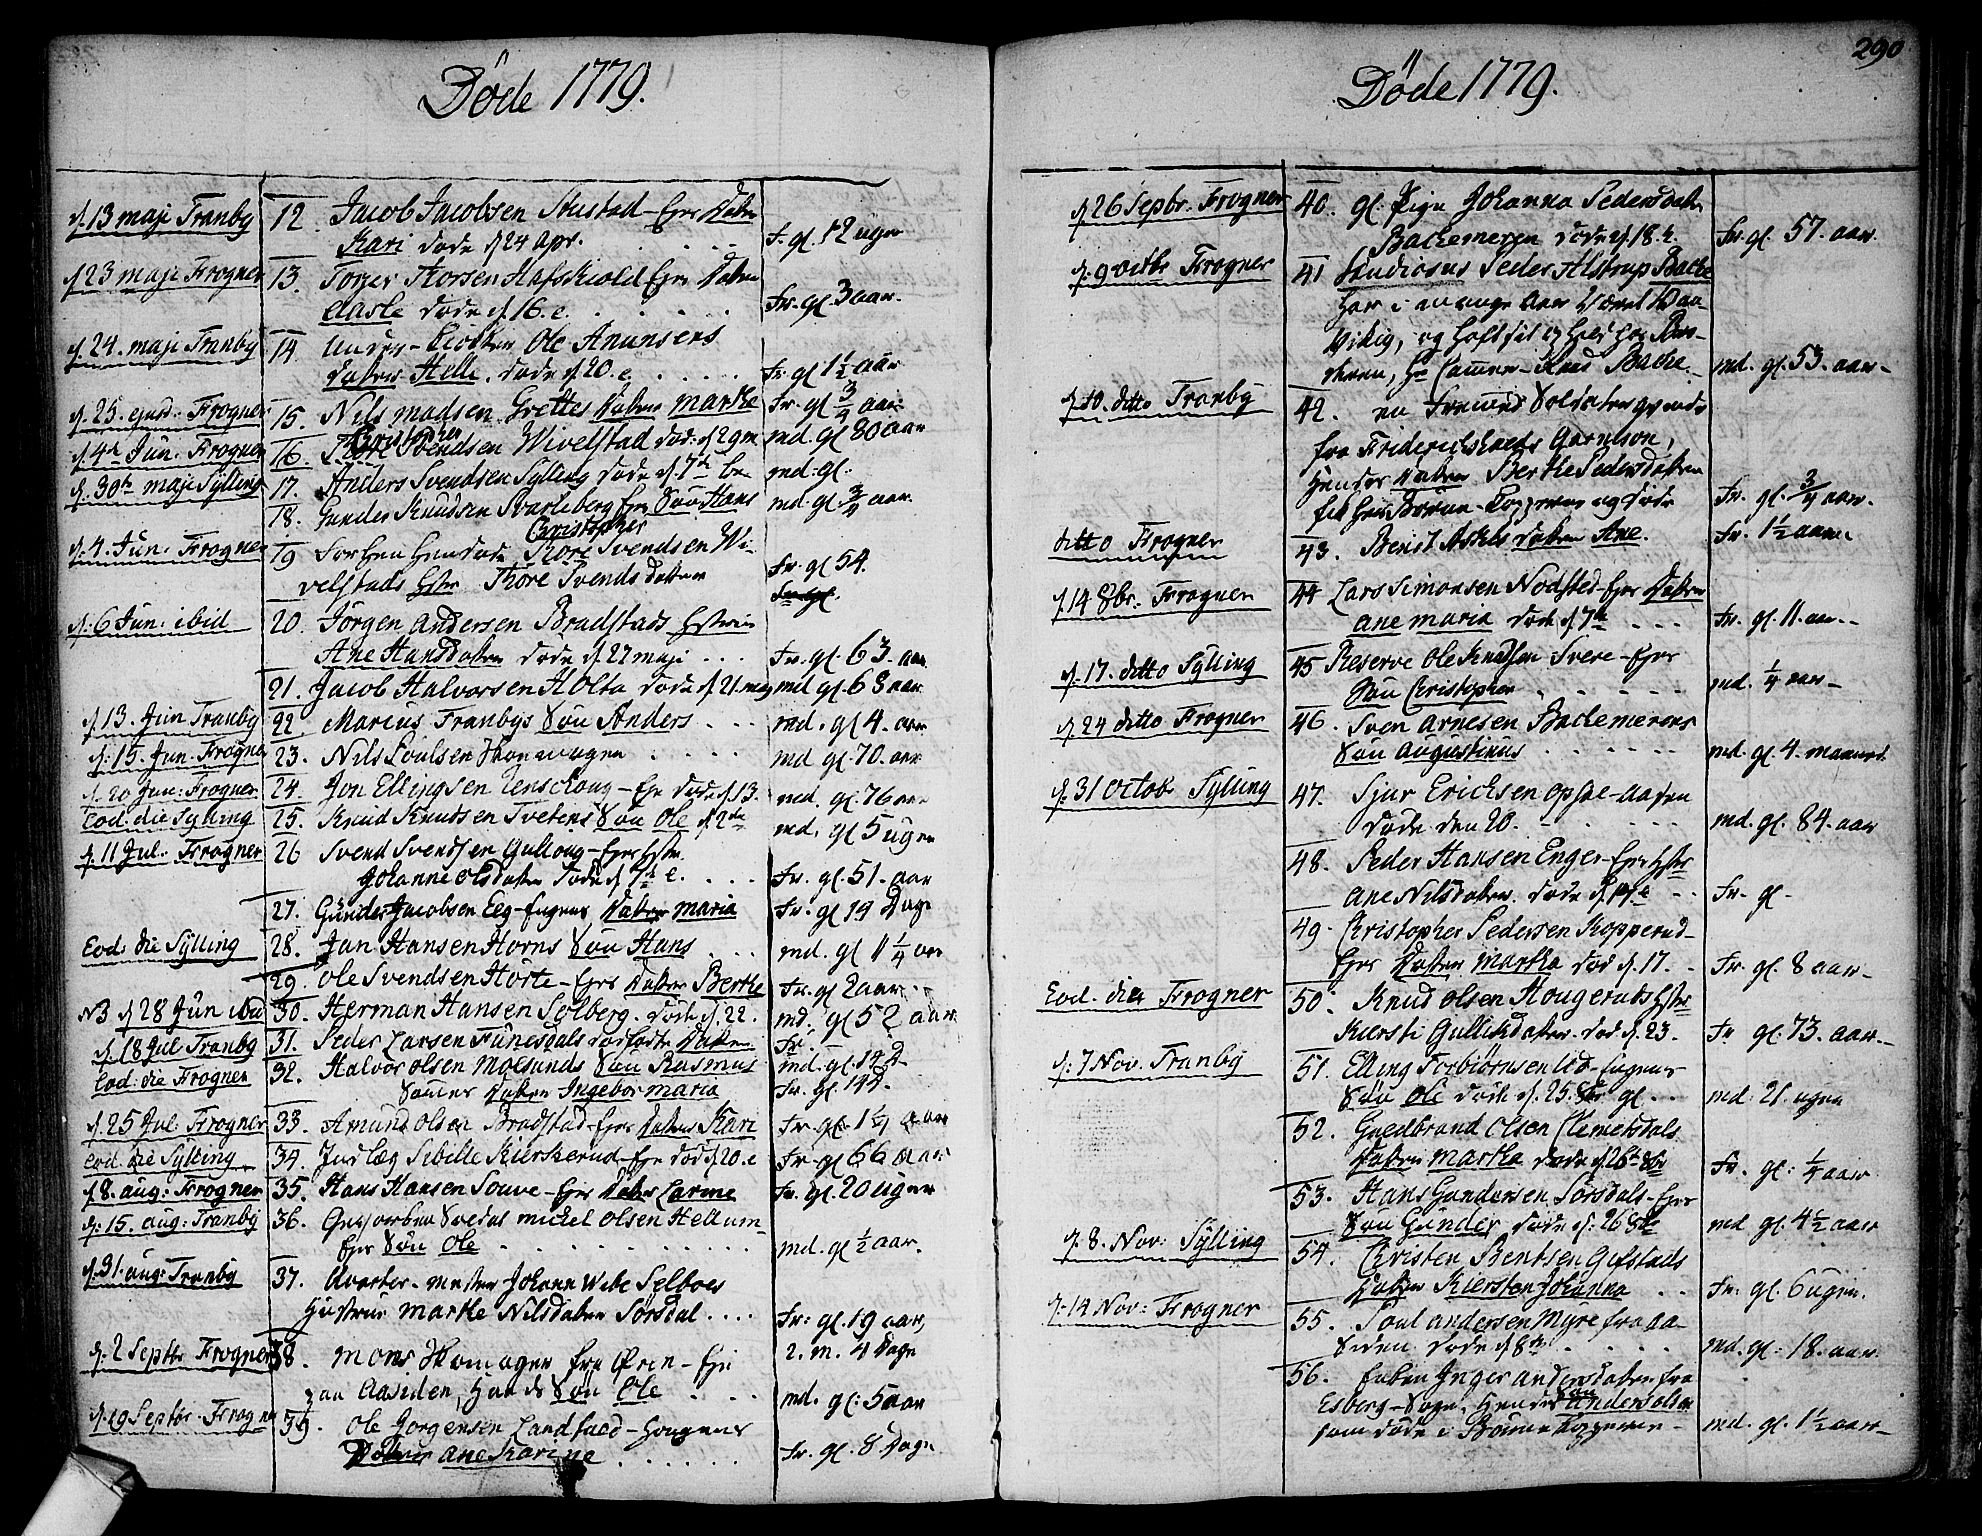 290
Döde 1779.
d. 13 maji Tranby 12. Jacob Jacobsen Stustad - Ejes Datter
Kari döde d. 24 Apr. . . . . F. gl. 12 uger
d. 23 maji Frogner 13. Torger Thorsen Hafskiold Ejes Datter
Aasle döde d. 16. e. . . . . Fr. gl. 3 aar.
d. 24. maji Tranby 14. Under- Ole Anunsens
Datter Helle. döde d. 20. e . . . . Fr. gl 1½ aar
d. 25. ejusd: Frogner 15. Nils madsen Grettes Datter Marthe Fr. gl ¾ aar
d. 4de Jun. Frogner 16. Christopher Svendsen Wivelstad död: d. 29 m md. gl 80 aar
d. 30te maji Sylling 17. Anders Svendsen Sylling döde d. 7de be- md: gl.
18. Gunder Knudsen Svarteberg Ejes Sön Hans md. gl ¾ aar.
d. 4. Jun. Frogner 19 Forhen hendöde Christopher Svendsen Wi-
velstads Hstr Thore Svends Datter Fr. gl 54.
d. 6 Jun. ibid 20. Jörgen Andersen Bradstads Hstrue
Ane Hansdatter döde d. 27 maji . . . Fr. gl. 63. aar
21. Jacob Halvorsen Holta döde d. 21. maj md gl 68 aar
d. 13. Jun Tranby 22 Marcus Tranbys Sön Anders . . . md. gl 4. aar
d. 15. Jun. Frogner 23. Nils Poulsen Skomager . . . md gl. 70. aar
d. 20 Jun: Frogner 24. Jon Ellingsen Enschoug - Eje döde d. 13. md. gl 76 aar
Eod. die Sylling 25. Knud Knudsen Tvetens Sön Ole d. 2de md. gl 5 uger
d. 11 Jul. Frogner 26 Svend Svendsen Gulloug - Ejes Hstr.
Johanne Olsdatter döde d. 7de e. . . . Fr. gl. 51. aar
27. Gunder Jacobsen Eeg-Engens Datter Maria Fr. gl 14 Dage
Eod. die Sylling 28. Jan Hansen Horns Sön Hans . . . md. gl 11¼ aar
29. Ole Svendsen Hörte - Ejes Datter Berthe Fr. gl 2 aar
N3 d. 28 Jun ibid 30. Herman Hansen Solberg. döde d. 22. md. gl 52 aar.
d. 18 Jul Tranby 31. Peder Larsen Tünesdals dödfödte Datter Fr.
Eod. die Frogner 32. Halvor Olsen Moesunds Sön Rasmus md. gl. 14 d
Sammes Datter Ingebor Maria Fr. gl. 14 d.
d. 25 Jul. Frogner 33. Amund Olsen Bradstad - Ejes Datter Kari Fr. gl. 1¼ aar
Eod. die Sylling 34. Indlæg Sibille Kierskerud - Eje död d. 20. e Fr. gl 66 aar
d. 8. aug: Frogner 35. Hans Hansen Souve - Ejes Datter Karine Fr. gl. 20 uger
d. 15. aug: Tranby 36. Michel Olsen Hellum-
Ejes Sön Ole . . . . . . md. gl ½ aar.
d. 31. aug: Tranby 37. Qvarter-mester Johan Wibe Selboes
Hustrue Marthe Nilsdatter Sörsdal . . . . Fr: gl. 19 aar,
2. m. 4 Dage
d. 2 Septbr Frogner 38. Mons Skomager fra Ören - Eje
paa Aasiden, Hands Sön Ole . . . . md. gl: 5 aar
d. 19 Septbr. Frogner 39. Ole Jörgensen Landfald - Hougens
Datter Ane Karine . . . . . . Fr. gl. 8 Dage
Döde 1779.
d. 26 Sepbr. Frogner 40. gl. Pige Johanna Pedersdatter
Bachemeren döde d. 18. e. Fr. gl. 57. aar.
d. 9 octbr Frogner 41 Studiosus Peder Alstrup Bache
har i mange Aar været
og holdt sig hos
Hr Cammer-Raad Bache. md. gl. 53. aar-
d. 10. ditto Tranby 42. en Soldater
fra Friderichstads Garnison,
hendes Datter Berthe Pedersdatter
fik her Börne-Kopperne og döde Fr. gl. ¾ aar.
ditto Frogner 43. Berit Askels datter Ane. Fr. 1½ aar
d. 14 8br. Frogner 44 Lars Simonsen Nodsted - Ejes Datter
Ane Maria döde d. 7de . . . Fr. gl. 11. aar
d. 17. ditto Sylling 45 Reserve Ole Knudsen Svere - Ejes
Sön Christopher . . . . . md. ¼ aar
d. 24 ditto Frogner 46. Sven Arnesen Bachemerens
Sön Augustinus . . . . . md. gl. 4. maaned.
d. 31 octobr Sylling 47. Sjur Ericksen Opsae-aasen
döde den 20. . . . . . md. gl. 84. aar
48. Peder Hansen Enger - Ejes Hstr
Ane Nilsdatter. döde d. 19. e . . Fr. gl.
49. Christopher Pedersen Kopperud-
Ejes Datter Martha död d. 17. . Fr. gl. 8 aar-
Eod. die Frogner 50. Knud Olsen Hougeruds Hstr
Kiersti Gulliksdatter. död d. 23. Fr gl. 73. aar.-
d. 7 Nov. Tranby 51. Elling Torbiörnsen Lid-Engens
Sön Ole döde d. 25. 8br gl . . md. 21. ugen
52. Guldbrand Olsen Clemetsdals
Datter Martha döde d. 26. 8br Fr. gl: ¼ aar
53. Hans Gundersen Sörsdals - Ejes
Sön Gunder, döde d. 26 8br md gl. 4½ aar
d. 8. Nov: Sylling 54. Christen Bentsen Gifstads
Datter Kiersten Johanna . . Fr. gl. 6 ugen.
d. 14 Nov: Frogner 55. Poul Andersen Myre fra Aa-
siden. döde d. 8de . . . . md. gl: 18. aar
56. Enken Inger Andersdatter fra
Esberg-Sogn. hendes Sön Anders Olsen
som döde i Börne Kopperne - md. gl. 1½ aar-